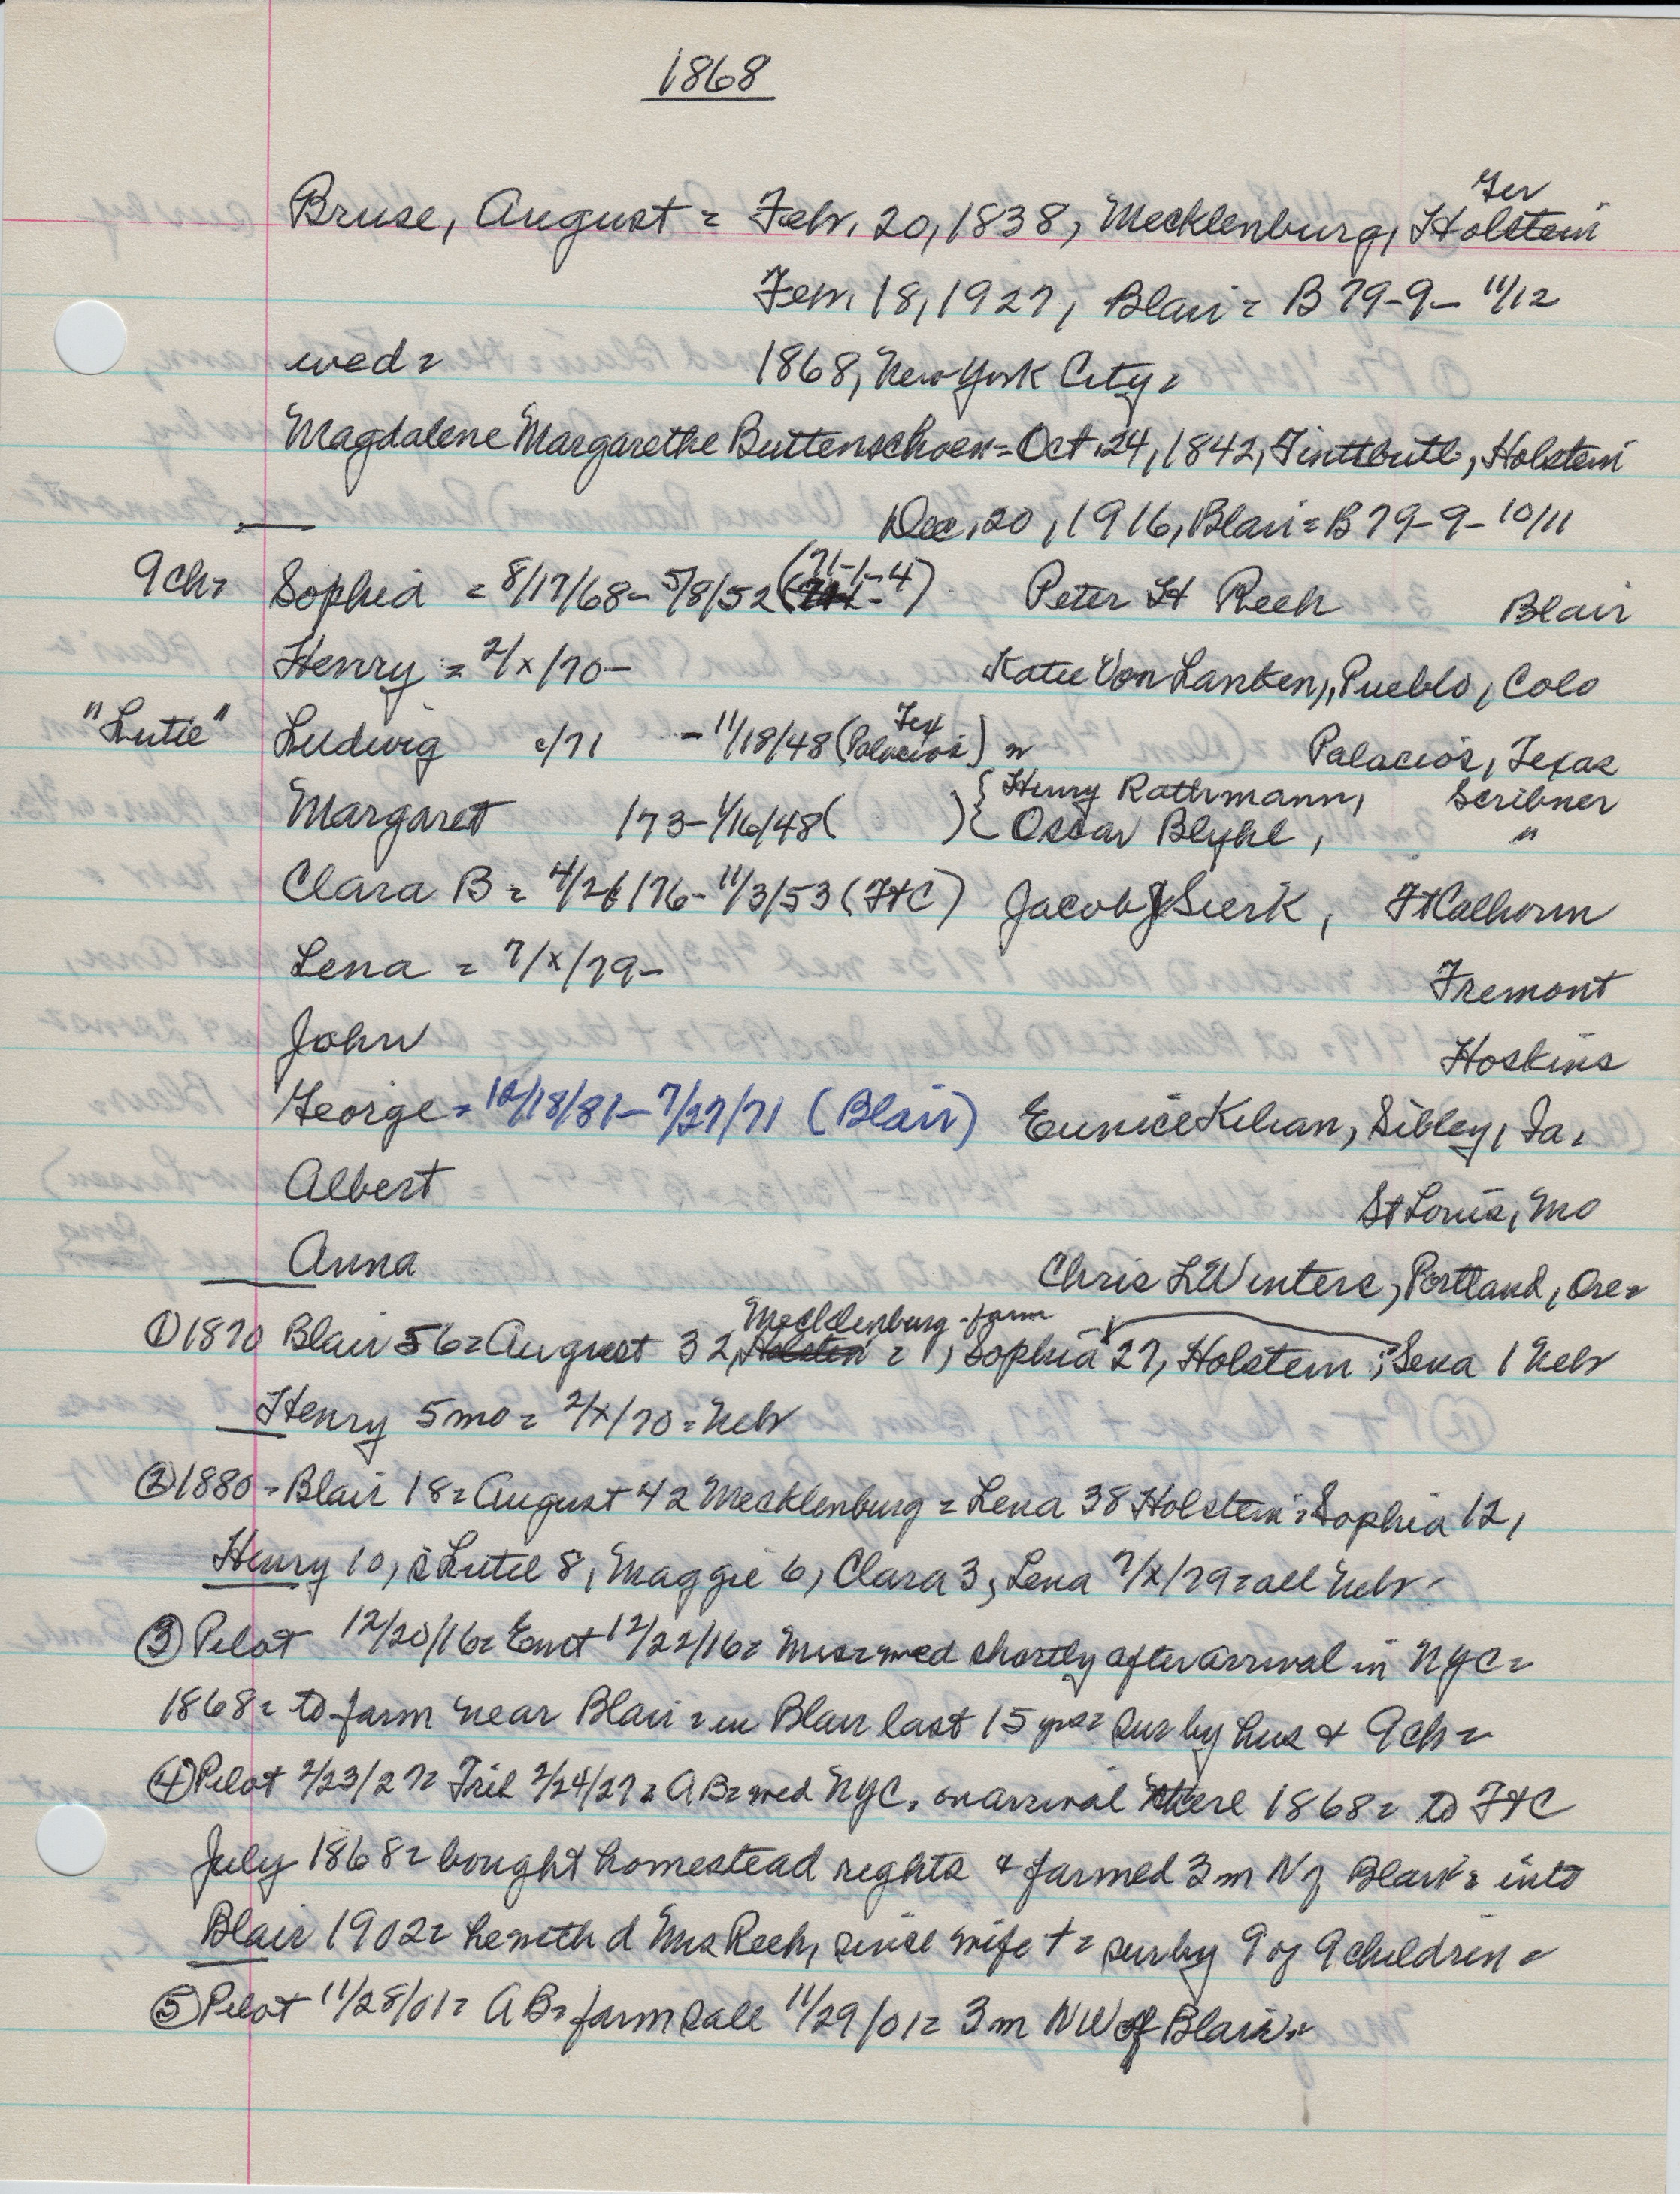 1868
Ger
Bruse, August = Feb. 20, 1838, Mecklenburg, Holstein
Feb. 18, 1927, Blair = B 79-9- 11/12
wed = 1868, New York City =
Magdalene Margarethe Buttenschoen = Oct. 24, 1842, Holstein
Dec. 20, 1916, Blair = B 79-9- 10/11
9ch= Sophia = 8/17/68 - 5/8/52 (71-1-4) Peter H Reeh Blair
Henry = 2/x/70 - Katie Von Lanken, Pueblo, Colo
"Lutie" Ludwig c/71 - 11/18/48 (Palacios Tex) = Palacios, Texas
Margaret /73 - 1/16/48 ( ) { Henry Rathmann, Scribner
Oscar Blyhl, "
Clara B = 4/26/76 - 11/3/53 (FtC) Jacob J Sierk, Ft Calhoun
Lena = 7/x/79 - Fremont
John Hoskins
George = 10/18/81 - 7/27/71 (Blair) Eunice Kilian, Sibley, Ia =
Albert St Louis, Mo
Anna Chris L Winters, Portland, Ore =
Mecklenburg - farm
① 1870 Blair 56 = August 32, Holstein = 1, Sophia 27, Holstein ; Lena 1 Neb
Henry 5 mo = 2/x/70 = Neb
② 1880 = Blair 18 = August 42 Mecklenburg = Lena 38 Holstein = Sophia 12,
Henry 10, Lutie 8, Maggie 6, Clara 3, Lena 7/x/79 = all Neb -
③ Pilot 12/20/16 = Ent 12/22/16 = Mrs = wed shortly after arrival in NYC =
1868 = to farm near Blair = in Blair last 15 yrs = sur by hus & 9 ch =
④ Pilot 2/23/27 = Trib 2/24/27 = AB = wed NYC, on arrival there 1868 = to FtC
July 1868 = bought homestead rights & farmed 3 m N of Blair = into
Blair 1902 = he with d Mrs Reeh, since wife + = sur by 9 of 9 children =
⑤ Pilot 11/28/01 = AB = farm sale 11/29/01 = 3 m NW of Blair =